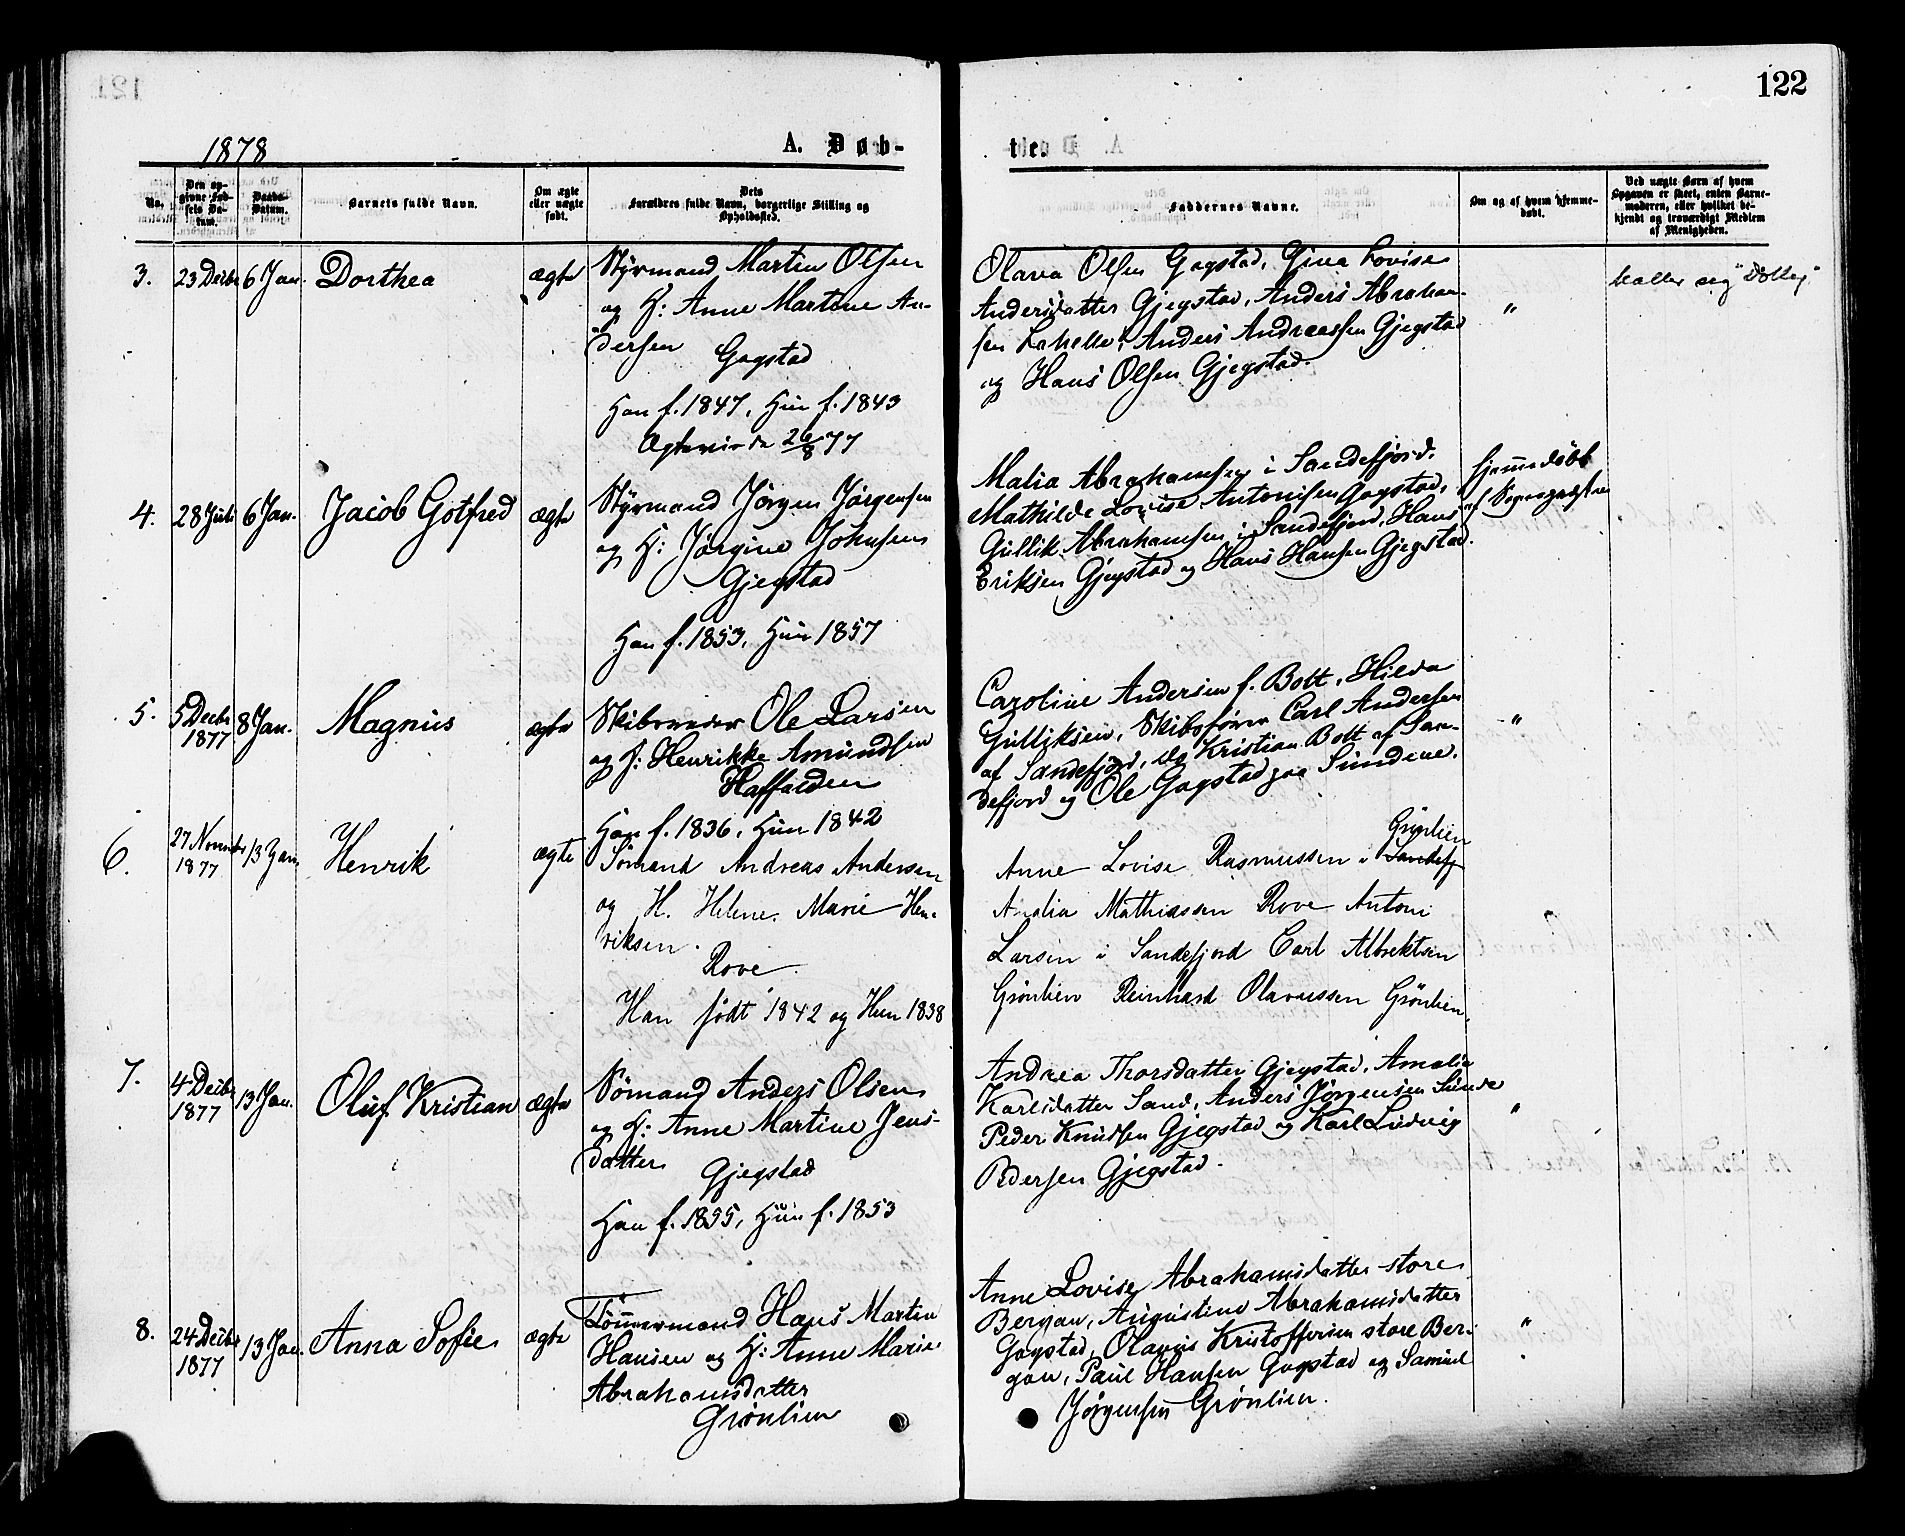 122
1878
A. Døb-
te.
No.
Den op-
givne Fød-
sels Da-
tum.
Daabs-
Datum.
Barnets fulde Navn.
Om ægte
eller uægte
født.
Dets
Forældres fulde Navn, borgerlige Stilling og
Opholdssted.
Faddernes Navne.
Om og af hvem hjemme-
døbt.
Ved uægte Børn af hvem
Opgaven er skeet, enten Barne-
moderen, eller hvilket be-
kjendt og troværdigt Medlem
af Menigheden.
3. 23 Decbr 6 Jan. Dorthea ægte
Styrmand Martin Olsen
og H: Anne Martine An-
dersen
Gogstad
Han f. 1847, Hun f. 1843
Ægteviede 26/8 77
Olava Olsen Gogstad, Gina Lovise
Andersdatter Gjegstad, Anders Abraham-
sen Lahelle, Anders Andreassen Gjegstad
og Hans Olsen Gjegstad.
"
kaller seg "Dolley"
4. 28 Juli 6 Jan. Jacob Gotfred ægte
Styrmand Jørgen Jørgensen
og H: Jørgine Johnsen
Gjegstad
Han f. 1853, Hun 1857
Malia Abrahamsen i Sandefjord.
Mathilde Lovise Antonisen Gogstad,
Gullik Abrahamsen i Sandefjord, Hans
Eriksen Gjegstad og Hans Hansen Gjegstad.
hjemmedøbt
af Sognepræsten
5. 5 Decbr
1877 8 Jan. Magnus ægte
Skibsreder Ole Larsen
og H: Henrikke Amundsen
Haffalden
Han f. 1836, Hun 1842
Caroline Andersen f. Bott, Hilda
Gulliksen, Skibsfører Carl Andersen
af Sandefjord, do Kristian Bott af San-
defjord og Ole Gogstad paa Sundene.
"
6. 27 Novembr
1877 13 Jan. Henrik ægte
Sømand Andreas Andersen
og H. Helene Marie Hen-
riksen.
Rove
Han født 1842 og Hun 1838
Grønlien
Anne Lovise Rasmussen i Sandefj
Amalia Mathiassen Rove Antoni
Larsen i Sandefjord Carl Albrektsen
Grønlien Reinhard Olavussen Grønlien.
"
7. 4 Decbr
1877 13 Jan. Oluf Kristian ægte
Sømand Anders Olsen
og H: Anne Martine Jens-
datter
Gjegstad
Han f. 1855, Hun f. 1853
Andrea Thorsdatter Gjegstad, Amalia
Karlsdatter Sand, Anders Jørgensen Sunde
Peder Knudsen Gjegstad og Karl Ludvig
Pedersen Gjegstad.
"
8. 24 Decbr
1877 13 Jan. Anna Sofie ægte
Tømmermand Hans Martin
Hansen og H: Anne Marie
Abrahamsdatter
Grønlien
Anne Lovise Abrahamsdatter store
Bergan, Augustine Abrahamsdatter
Gogstad, Olavus Kristoffersen store Ber-
gan, Paul Hansen Gogstad og Samuel
Jørgensen Grønlien.
"